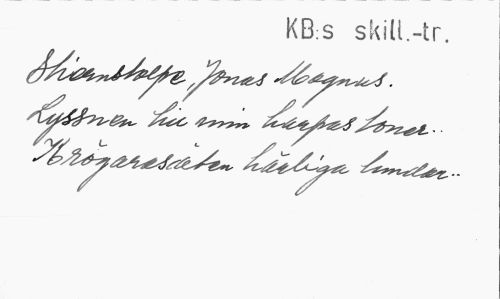 KB:s skill.-tr.
Stiernstolpe, Jonas Magnus.
Lyssnen till min harpas toner..
Krögaresäten härliga lundar..